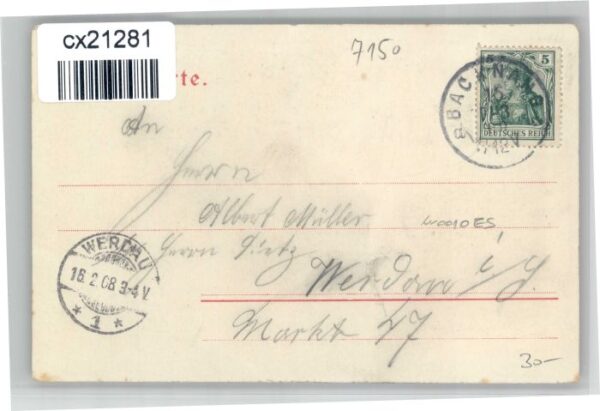 cx21281
7150
rte.
5
BACKNANG
DEUTSCHES REICH
An
Herrn
Albert Müller
Herrn Dietz
W0010ES
WERDAU
16.2.08.3-4V.
* 1 *
Werdau i/S.
Markt 47
30-